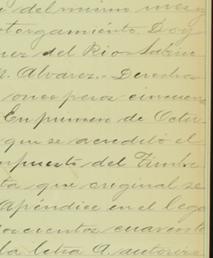 del mismo mes
otorgamiento Doy
nez del Rio Sabin
r. Alvarez.- Derechos
once pesos cincuen
En primero de Octu
que se acreditó el
mpuesto del Timbre
ta que original se
Apéndice en el lega
oscientos cuarenta
la letra A. autorizo